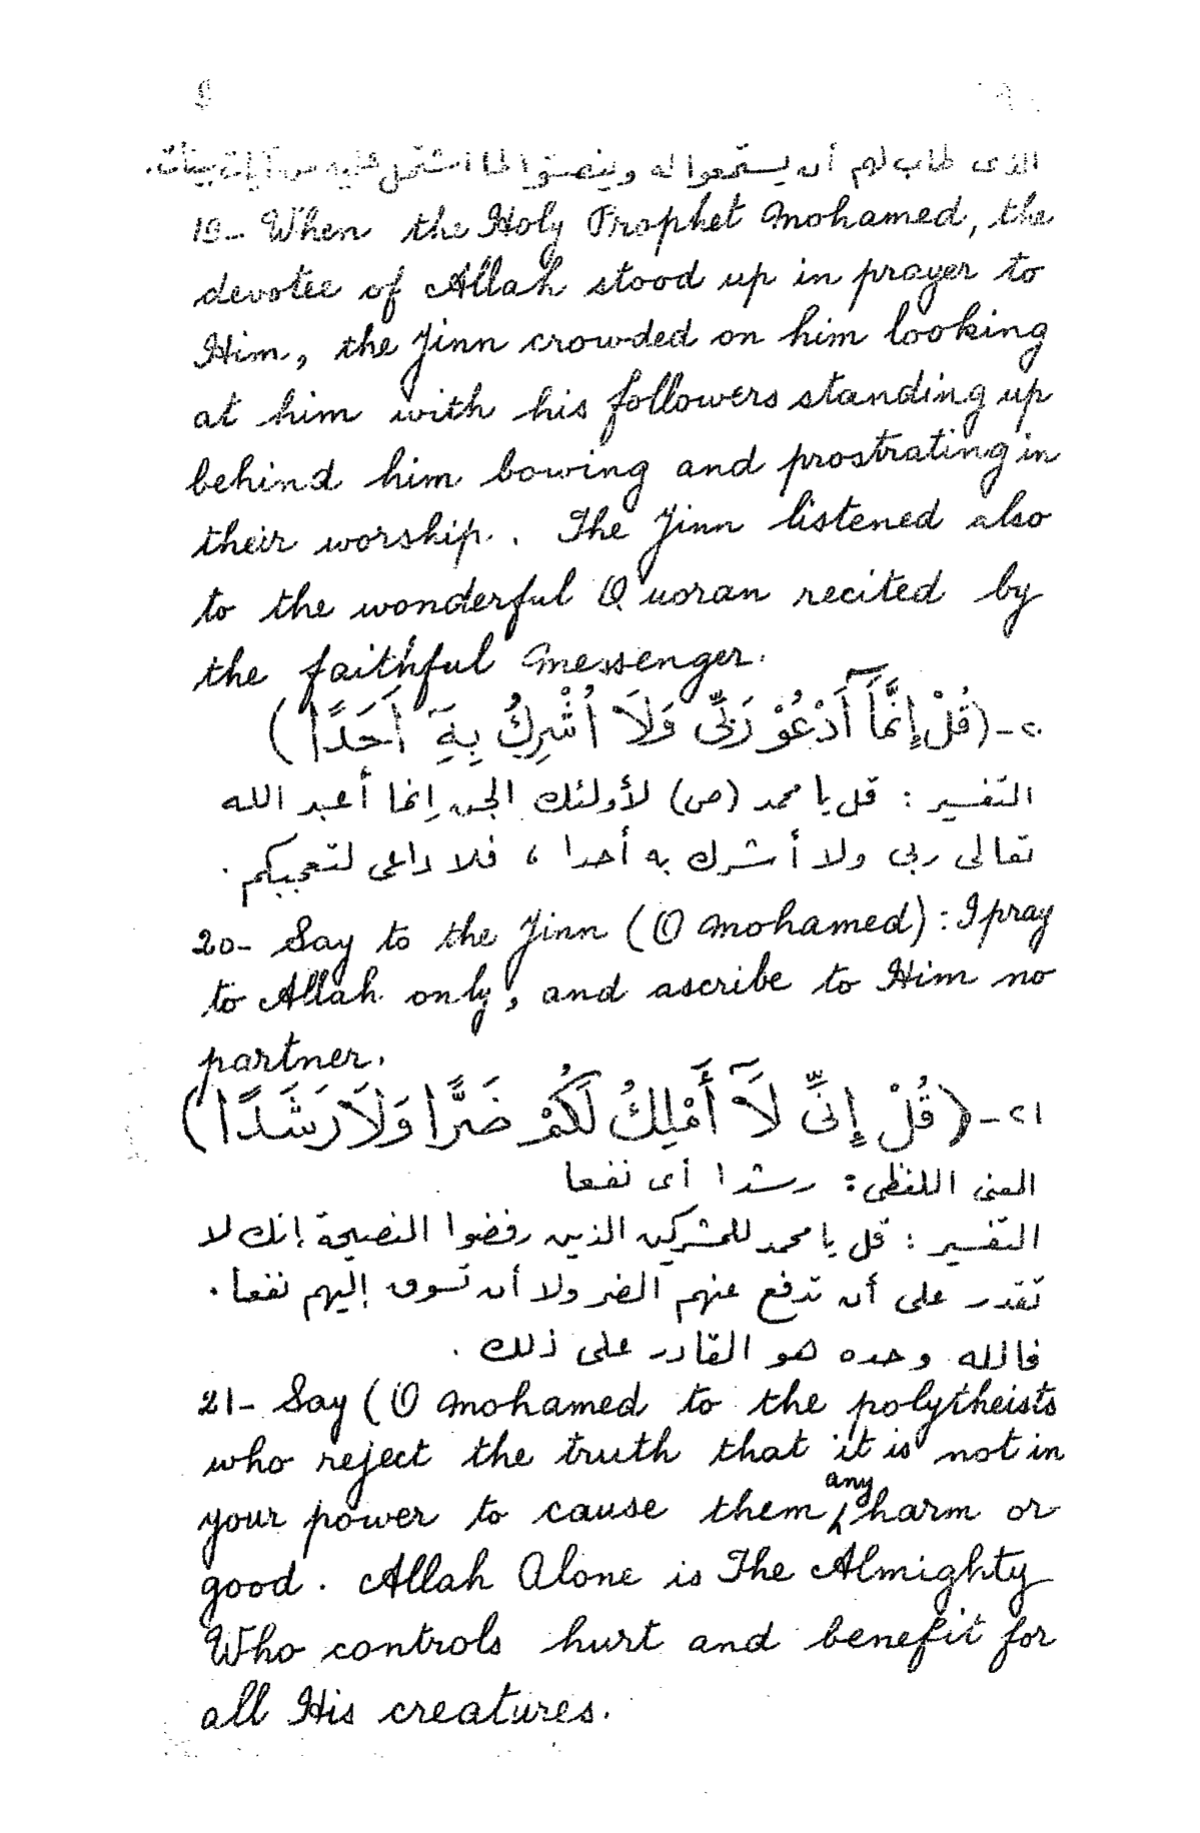 الذى طاب لهم أن يستمعوا له وينصتوا لما اشتمل عليه من آيات بينات.
19- When the Holy Prophet Mohamed, the
devotee of Allah stood up in prayer to
Him, the Jinn crowded on him looking
at him with his followers standing up
behind him bowing and prostrating in
their worship. The Jinn listened also
to the wonderful Q'uoran recited by
the faithful Messenger.
٢٠-(قُلْ إِنَّمَآ أَدْعُوْ رَبِّى وَلَآ أُشْرِكُ بِهِٓ أَحَدًا)
التفسير : قل يا محمد (ص) لأولئك الجن إنما أعبد الله
تعالى ربى ولا أشرك به أحدا ، فلا داعى لتعجبكم .
20- Say to the Jinn (O Mohamed): I pray
to Allah only, and ascribe to Him no
partner.
٢١-(قُلْ إِنِّى لَآ أَمْلِكُ لَكُمْ ضَرًّا وَلَا رَشَدًا)
المعنى اللفظى : رشدا أى نفعا
التفسير : قل يا محمد للمشركين الذين رفضوا النصيحة إنك لا
تقدر على أن تدفع عنهم الضر ولا أن تسوق إليهم نفعا .
فالله وحده هو القادر على ذلك .
21- Say (O Mohamed to the polytheists
who reject the truth that it is not in
your power to cause them any harm or
good. Allah Alone is The Almighty
Who controls hurt and benefit for
all His creatures.